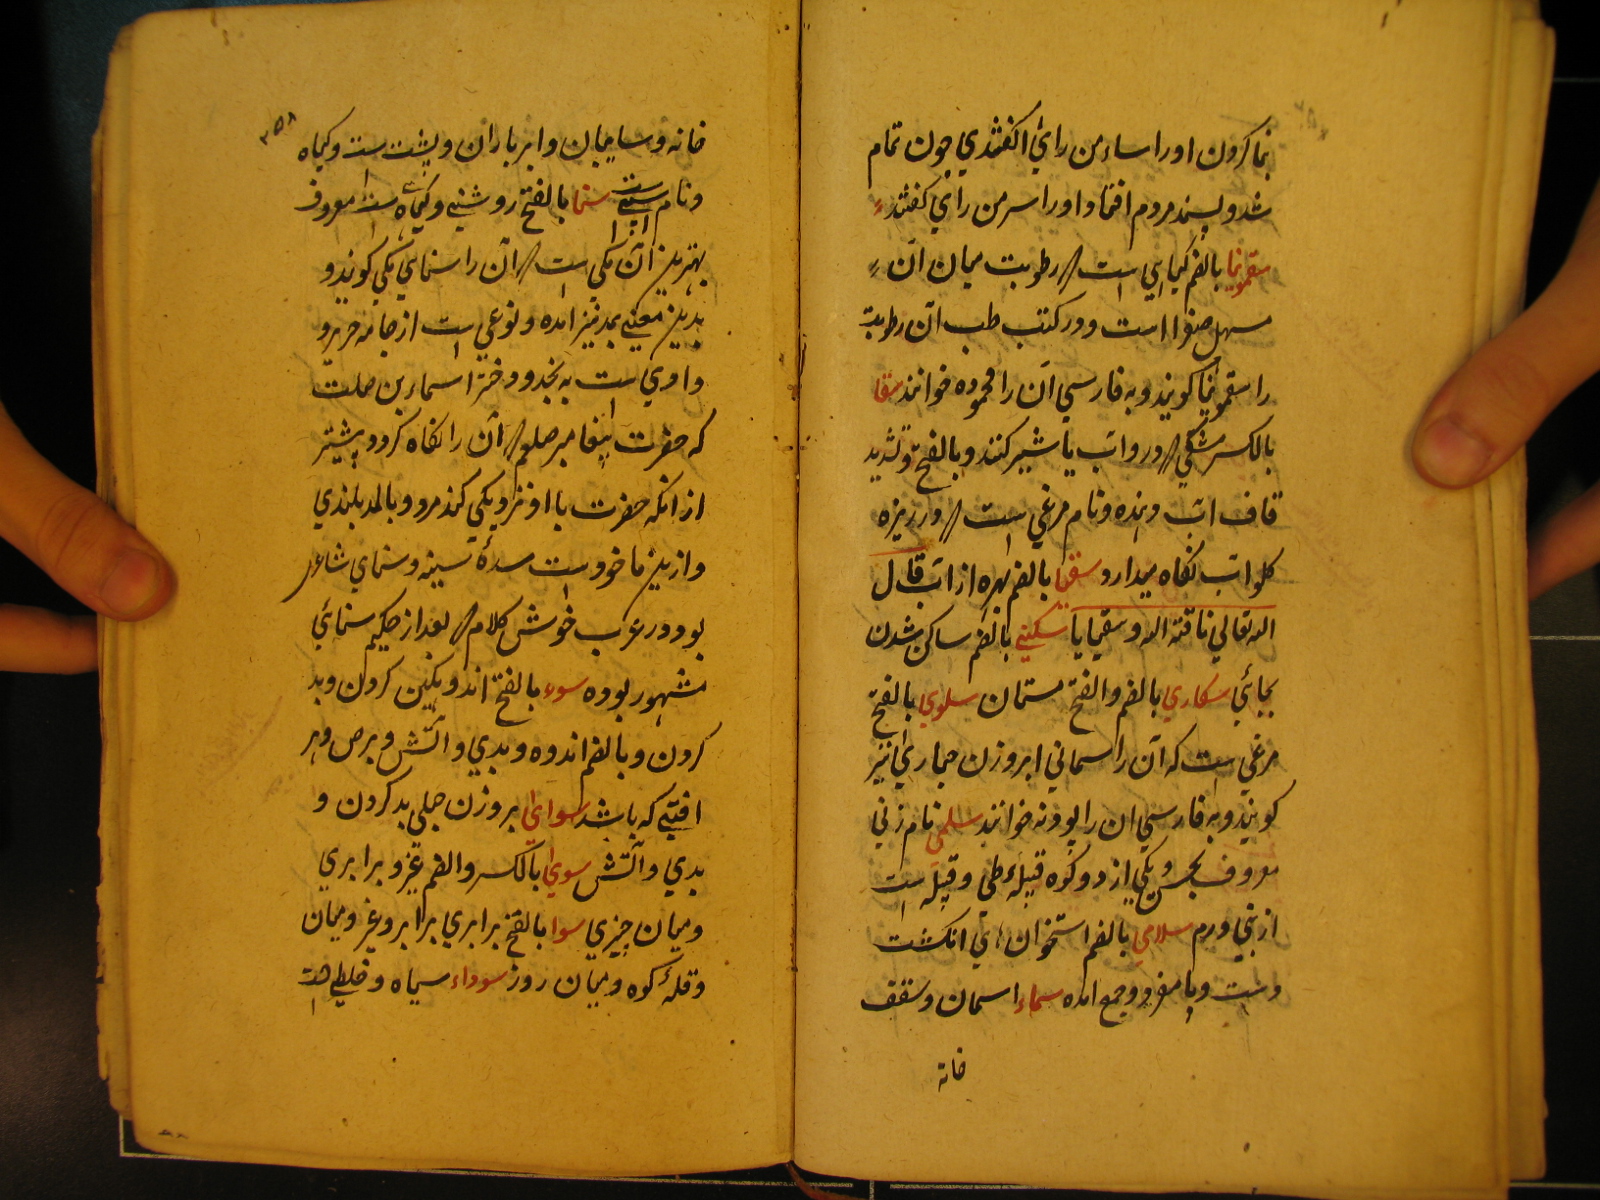 بنا کردن اورا ساء من رای اکفندی چون تمام
شد و پسند مردم افتاد اورا سر من رای کفتند
سقمونیا بالضم کیاهی است رطوبت میان آن
مسهل صفرا است و در کتب طب آن رطوبت
را سقمونیا کویند و به فارسی آن را محموده خوانند سقا
بالکسر مشکی در و اب یا شیر کنند و بالفتح و تشدید
قاف اب دهنده و نام مرغی است در ریزه
کلو اب نکاه میدارد سقیا بالضم بهره از اب قال
الله تعالی ناقة الله وسقیاها سکنی بالضم ساکن شدن
بجائی سکاری بالضم والفتح مستان سلوی بالفتح
مرغی ست که آن را سمانی ابر وزن حباری نیز
کویند و به فارسی ان را بودنه خوانند سلمی نام زنی
معروف بحسن و یکی از دو کوه قبیله طی و قبیله است
از بنی ورم سلامی بالضم استخوان های انکشت
دست و پا مفرد و جمع امده سماء اسمان و سقف
خانه
۲۵۸
خانه و سایبان و ابر باران و پشت ست و کیاه
و نام سنا بالفتح روشنی و کیاه ست معروف
بهترین آن مکی است آن را سنای مکی کویند و
بدین معنی بمد نیز امده و نوعی است از جامه حریر و
وادی ست به نجد و دختر اسماء بن صلت
که حضرت پیغامبر صلعم آن را نکاه کرد و پیشتر
از انکه حضرت با او نزدیکی کند مرد و بالمد بلندی
و ازین ماخود ست سدهٔ سینه و سنای شاعر
بود در عرب خوش کلام بعد از حکیم سنائی
مشهور بوده سوء بالفتح اندوهکین کردن و بد
کردن و بالضم اندوه و بدی و اتش و برص و هر
افتی که باشد سوای بر وزن حبلی بد کردن و
بدی و اتش سوی بالکسر والضم غیر و برابری
و میان چیزی سوا بالفتح برابری برابر و غیر و میان
و قلهٔ کوه و میان روز سوداء سیاه و خلطی است